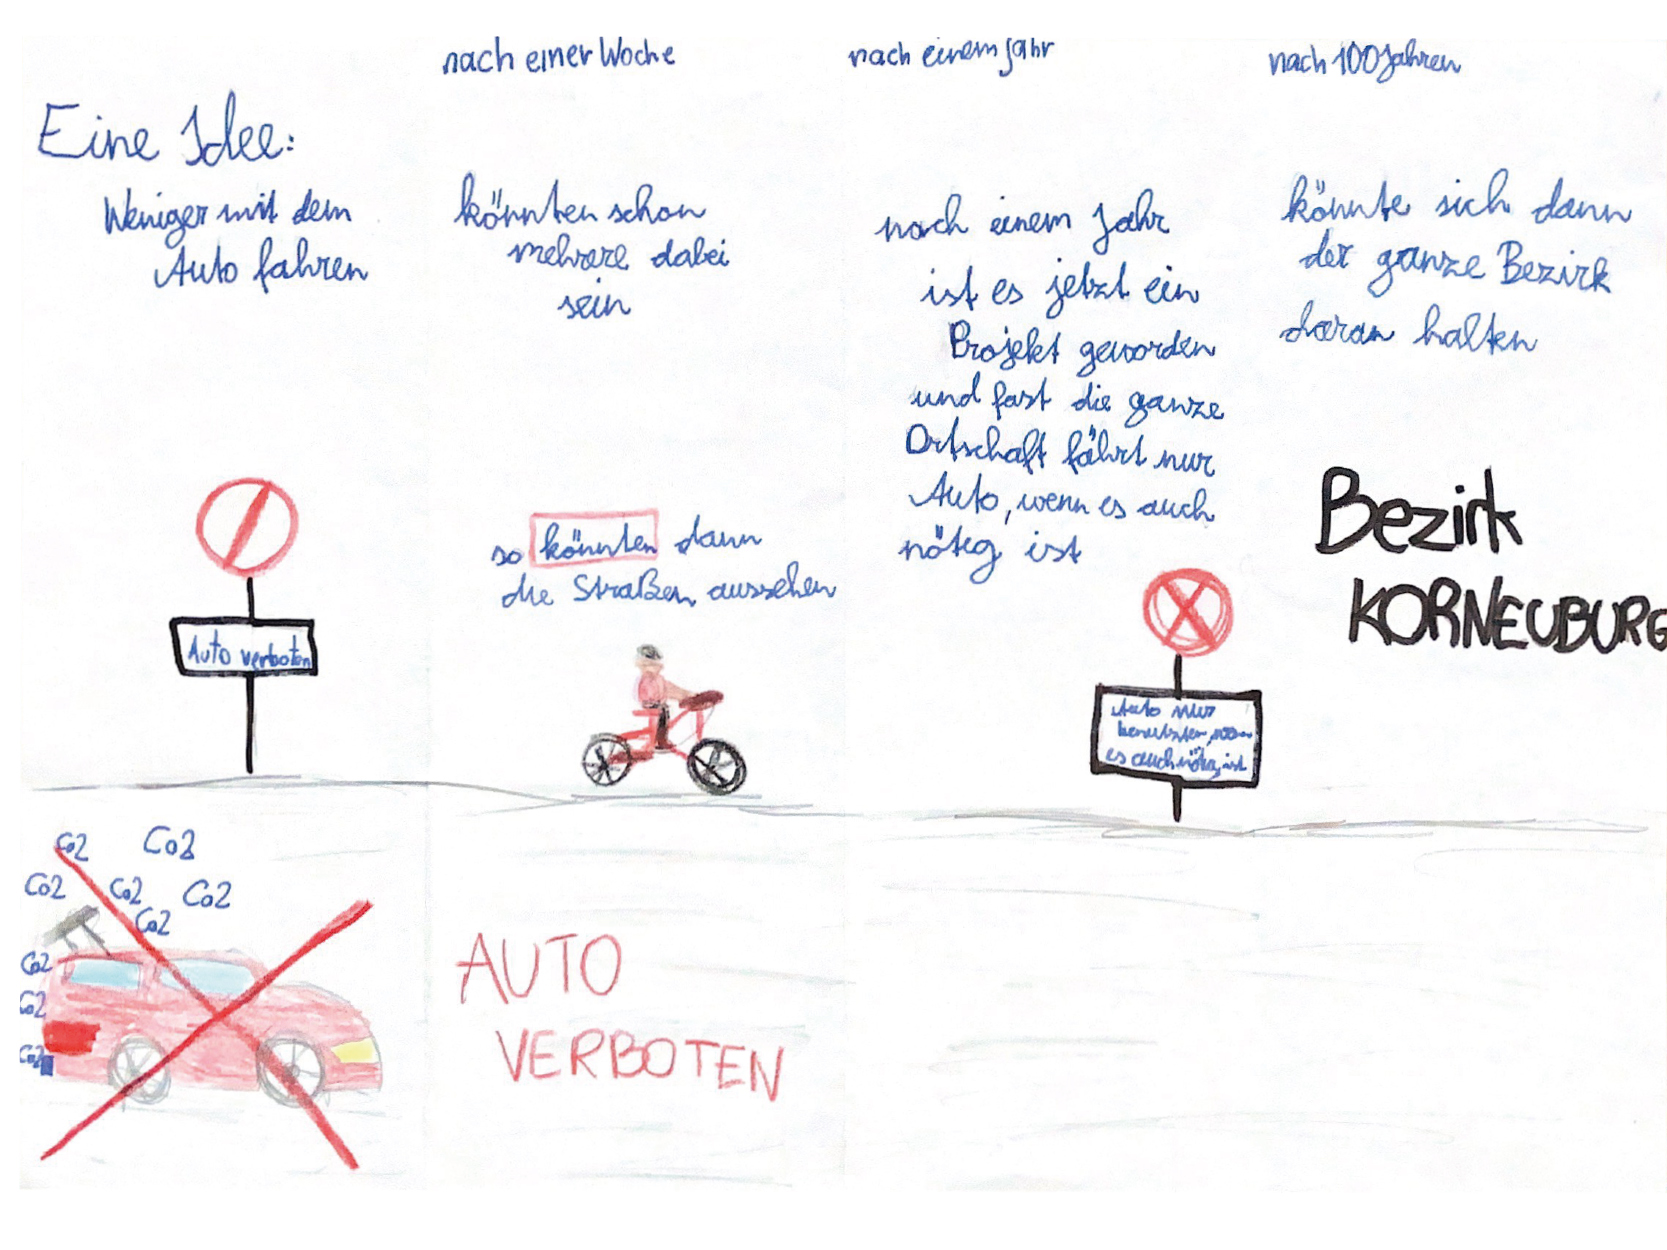 Eine Idee:
Weniger mit dem
Auto fahren
Auto verboten
Co2 Co2
Co2 Co2 Co2
Co2
Co2
Co2
Co2
nach einer Woche
könnten schon
mehrere dabei
sein
so könnten dann
die Straßen aussehen
AUTO
VERBOTEN
nach einem Jahr
nach einem Jahr
ist es jetzt ein
Projekt geworden
und fast die ganze
Ortschaft fährt nur
Auto, wenn es auch
nötig ist
Auto nur
benutzten, wenn
es auch nötig ist
nach 100 Jahren
könnte sich dann
der ganze Bezirk
daran halten
Bezirk
KORNEUBURG